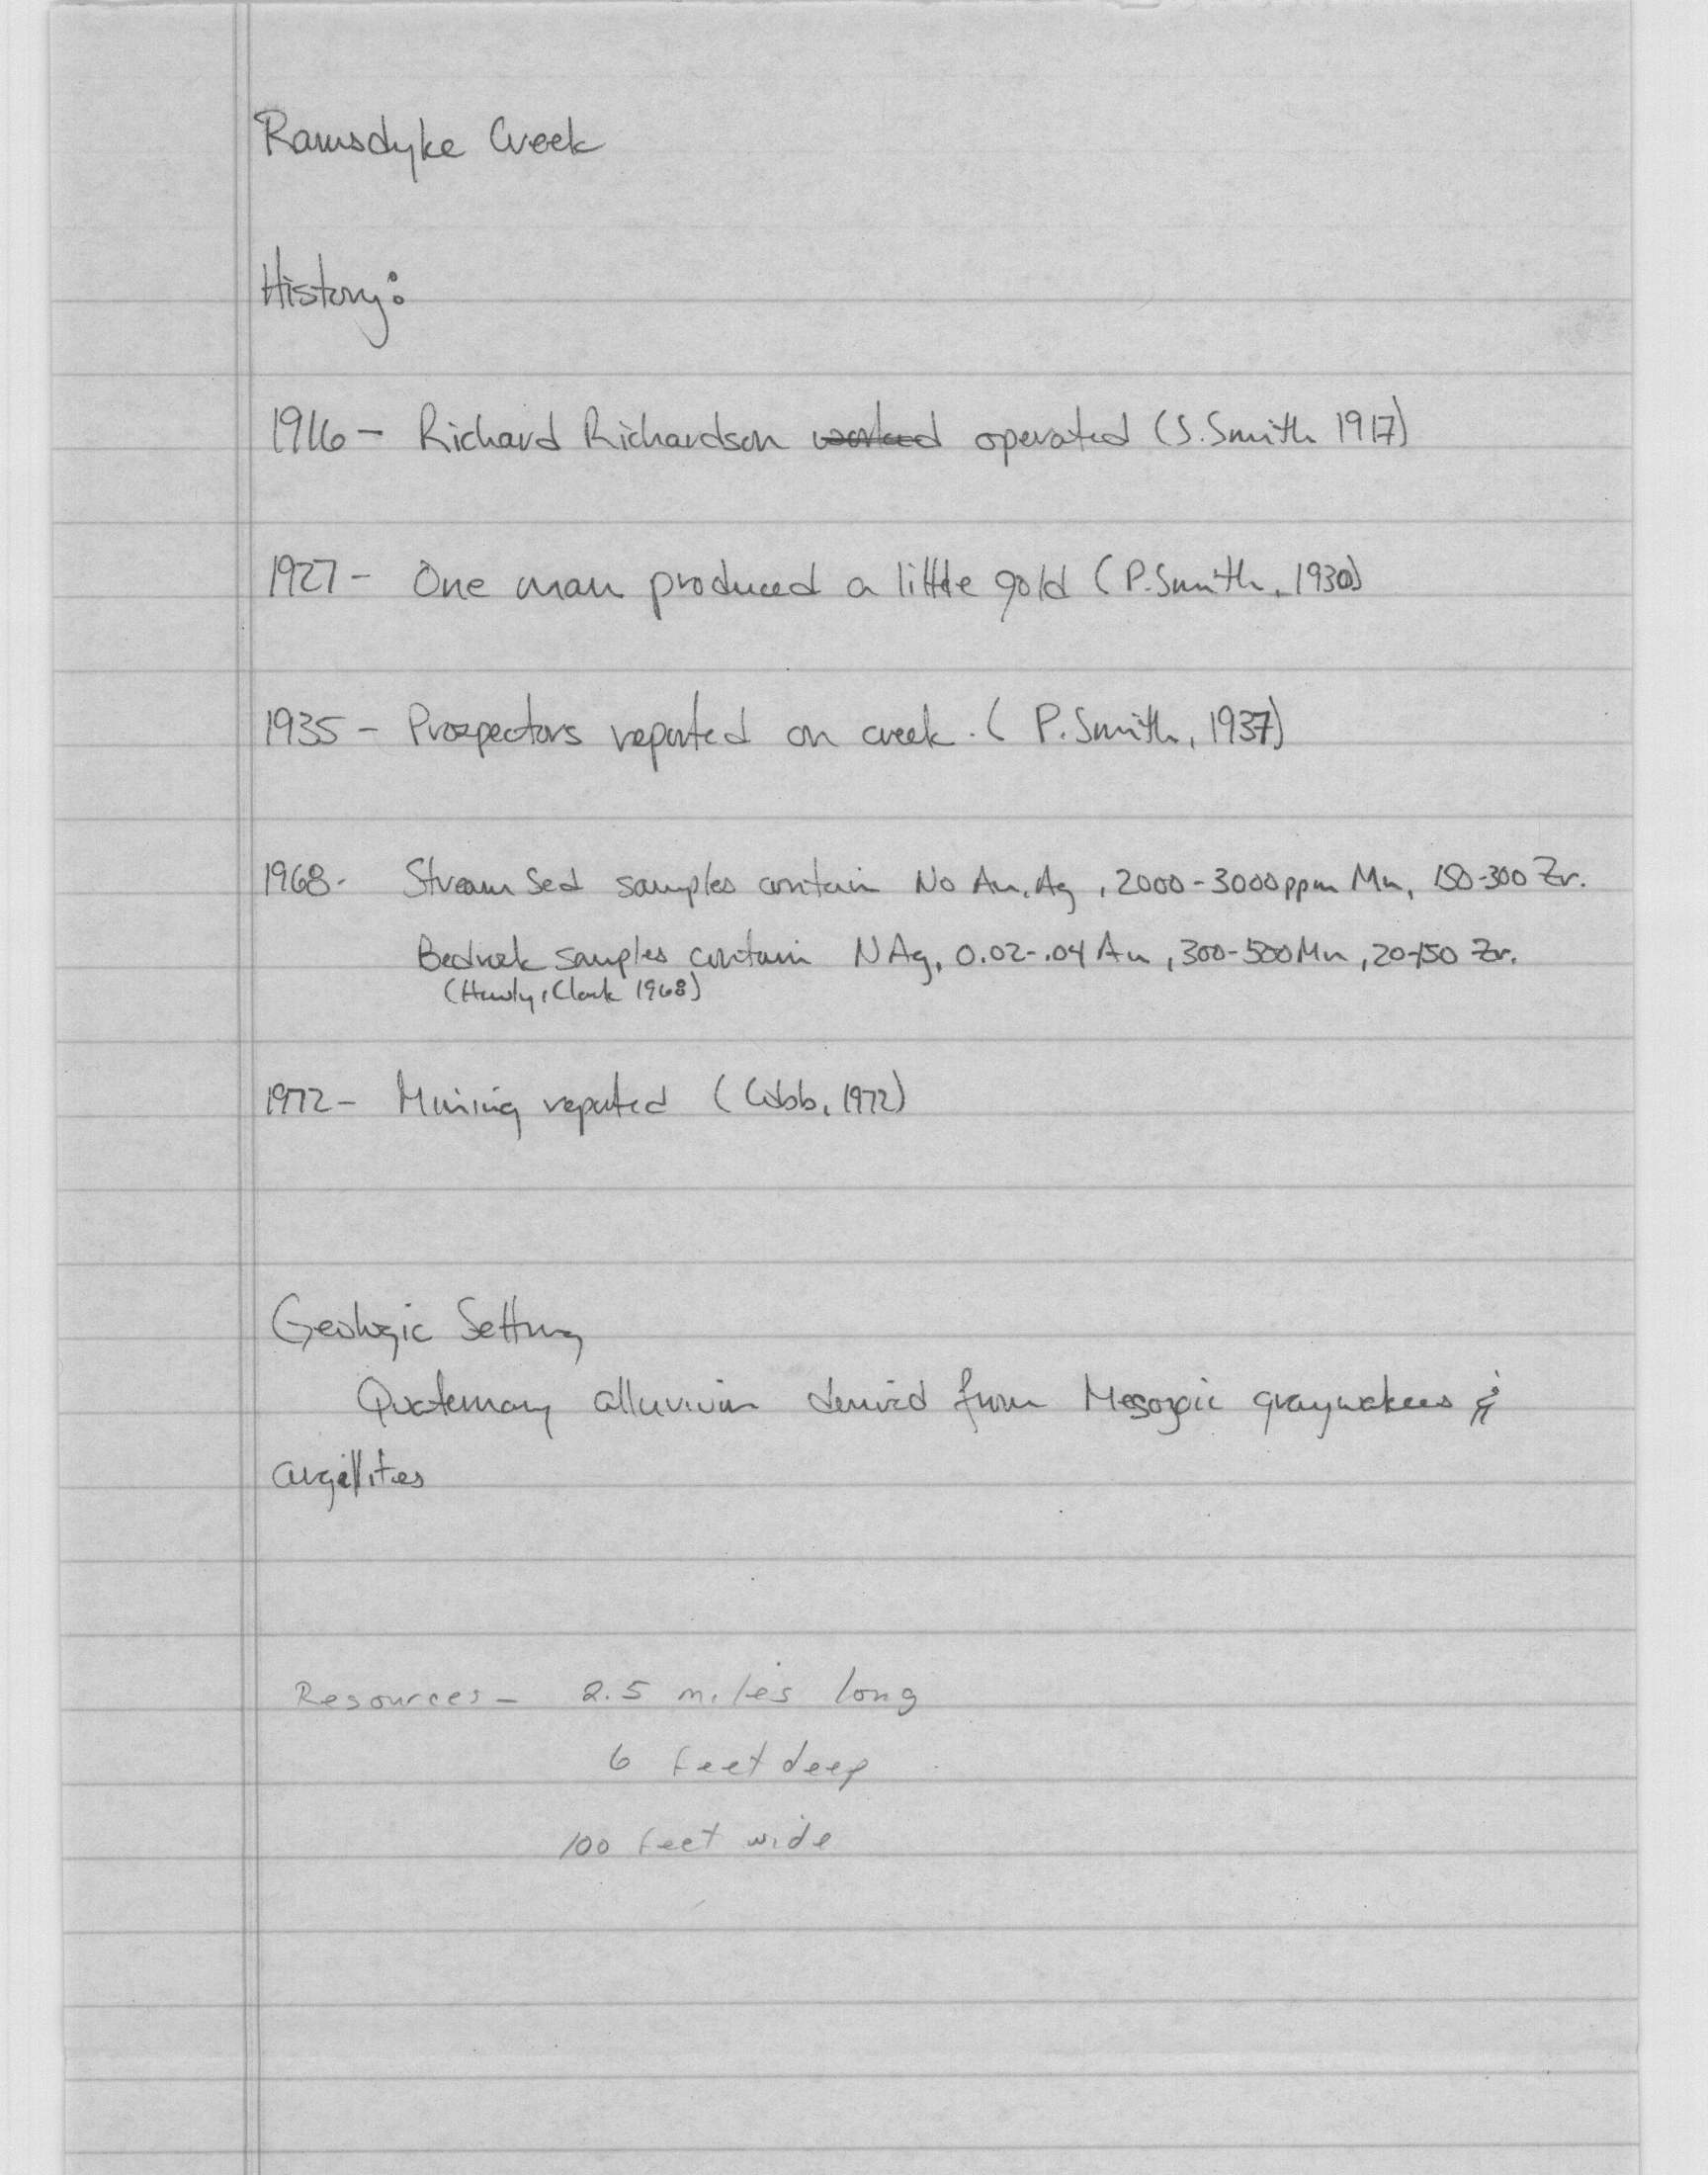 Ramsdyke Creek
History:
1916 - Richard Richardson worked operated (S. Smith 1917)
1927 - One man produced a little gold (P. Smith, 1930)
1935 - Prospectors reported on creek. ( P. Smith, 1937)
1968- Stream Sed samples contain No Au, Ag, 2000-3000ppm Mn, 150-300 Zr.
Bedrock samples contain N Ag, 0.02-.04 Au, 300-500 Mn, 20-150 Zr.
( , Clark 1968)
1972 - Mining reported (Cobb, 1972)
Geologic Setting
Quaternary alluvium derived from Mesozoic graywackees &
argillites
Resources - 2.5 miles long
6 feet deep
100 feet wide